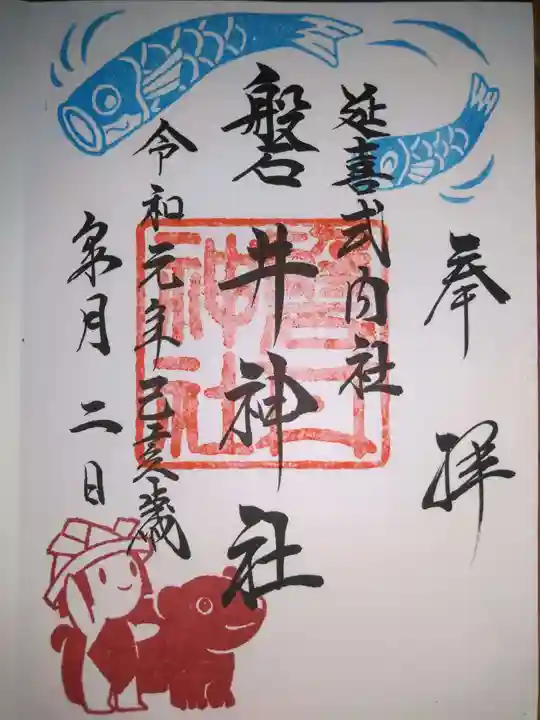 奉拝
延喜式内社
磐井神社
令和元年己亥歳
皐月二日